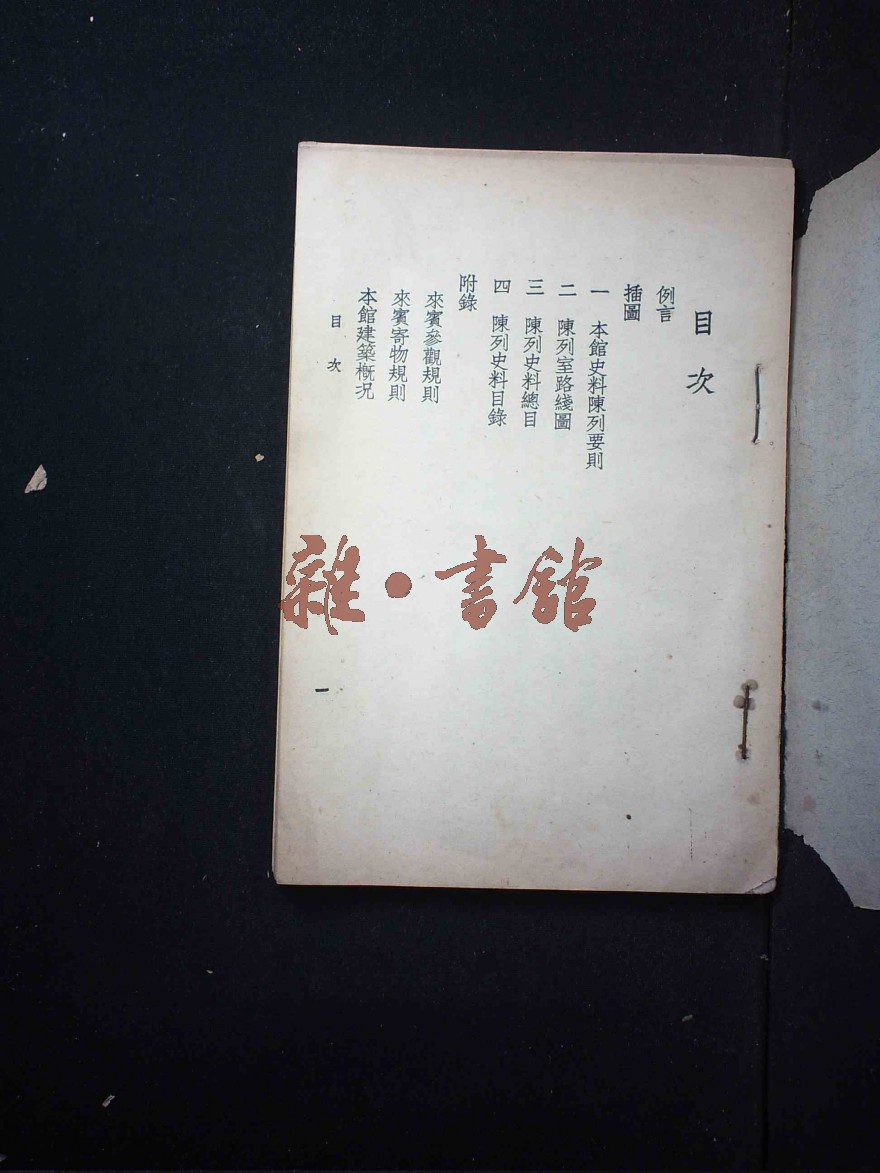 目次
例言
插圖
一 本館史料陳列要則
二 陳列室路綫圖
三 陳列史料總目
四 陳列史料目錄
附錄
來賓參觀規則
來賓寄物規則
本館建築概况
目次
一
雜·書館